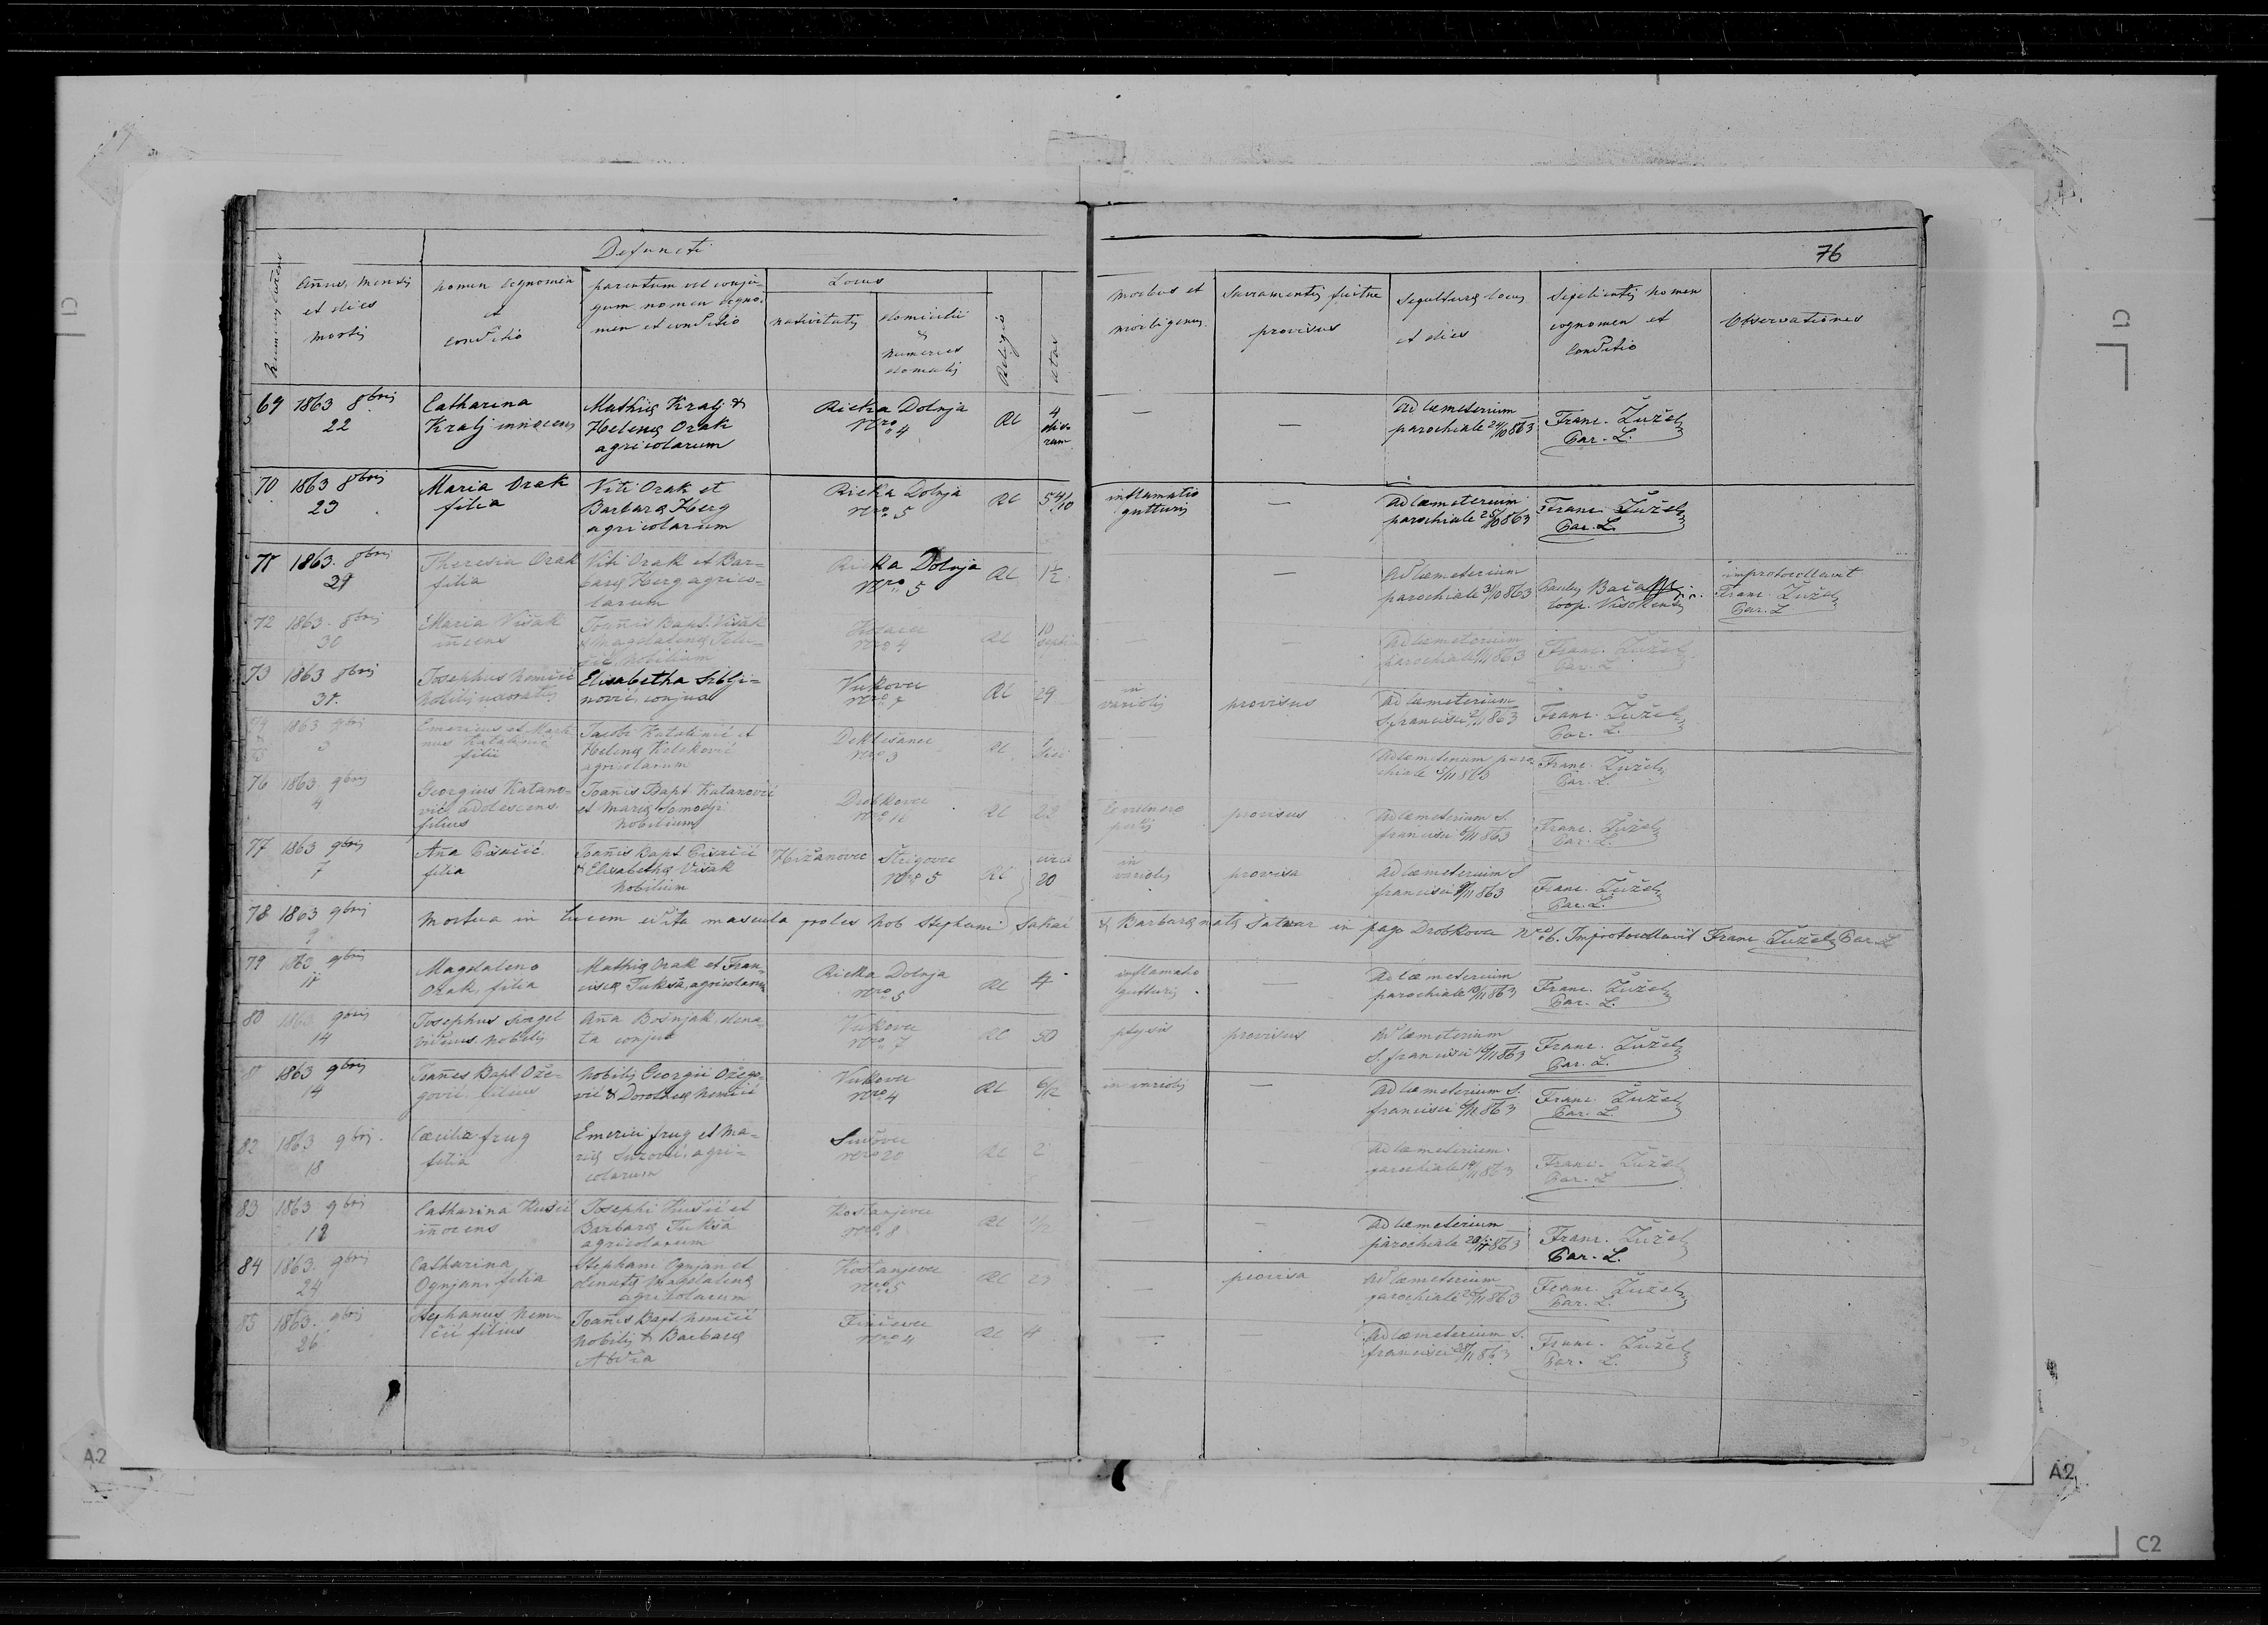 Defuncti
76
Numerus currens
Annus, Mensis et dies Mortis
nomen cognomen et conditio
parentum vel conju-
gum nomen cogno-
men et conditio
Locus
nativitatis
domicilii & numerus domus
Religio
Ætas
Morbus et morbi genus
Sacramentis fuitne provisus
Sepulturæ locus et dies
Sepelientis nomen cognomen et conditio
Observationes
69 1863 8bris 22
Catharina
Kralj innocens
Mathiæ Kralj &
Helenæ Orak
agricolarum
Rieka Dolnja
Nro 4
RC
4 dierum
—
—
Ad cœmeterium
parochiale 24/10 863
Franc. Žužel
Par. L.
70 1863 8bris 23
Maria Orak
filia
Viti Orak et
Barbaræ Herg
agricolarum
Rieka Dolnja
Nro 5
RC
5 4/10
inflamatio
gutturis
—
Ad cœmeterium
parochiale 25/10 863
Franc. Žužel
Par. L.
71 1863. 8bris 29
Theresia Orak
filia
Viti Orak et Bar-
baræ Herg agrico-
larum
Rieka Dolnja
Nro 5
RC
1 1/2
—
Ad cœmeterium
parochiale 31/10 863
coop. Visokensis
improtocollavit
Franc. Žužel
Par. L
72 1863. 8bris 30
Maria Višak
iñcens
Joañis Bapt. Višak
& Magdalenæ
nobilium
Nro 4
RC
10
—
—
Ad cœmeterium
parochiale 1/11 863
Franc. Žužel
Par. L.
73 1863 8bris 31.
Josephus Nemčić
Nobilis uxoratus
Elisabetha Siblji-
nović, conjux
Vukovec
Nro 7
RC
29
in
variolis
provisus
Ad cœmeterium
S. francisci 2/11 863
Franc. Žužel
Par. L.
74 & 75 1863 9bris 3
Emericus et Mart-
nus Katalenić
filii
Jacobi Katalenić et
Helenæ Kuleković
agricolarum
Nro 3
RC
Ad cœmeterium paro-
chiale 5/11 863
Franc. Žužel
Par. L.
76 1863 9bris 4
Georgius Katano-
vić, adolescens.
filius
Joañis Bapt Katanović
et Mariæ Somodji
nobilium
Drobkovec
RC
22
E vulnere
provisus
Ad cœmeterium S.
francisci 6/11 863
Franc. Žužel
Par. L.
77 1863 9bris 7
Ana Pisačić
filia
Joañis Bapt Pisačić
& Elisabethæ Višak
nobilium
Hižanovec
Štrigovec
Nro 5
RC
circa
20
in
variolis
provisa
Ad cœmeterium S
francisci 9/11 863
Franc. Žužel
Par. L.
78 1863 9bris 9
Mortua in lucem edita mascula proles Nob Stephani Sakač & Barbaræ natæ Salwar in pago Drobkovec Nro 6. Improtocollavit Franc Žužel Par. L
79 1863 9bris 11
Magdalena
Orak, filia
Mathiæ Orak et Fran-
ciscæ Tuksa, agricolarum
Rieka Dolnja
Nro 5
RC
4
inflamatio
gutturis
—
Ad cœmeterium
parochiale 13/11 863
Franc. Žužel
Par. L.
80 1863 9bris 14
Josephus
viduus. Nobilis
Aña Bošnjak, dena-
ta conjux
Vukovec
Nro 7
RC
50
ptysis
provisus
Ad cœmeterium
S. francisci 16/11 863
Franc. Žužel
Par. L.
81 1863 9bris 14
Joañes Bapt Ože-
gović, filius
Nobilis Georgii Ožego-
vić & Dorotheæ Nemčić
Vukovec
Nro 4
RC
6/12
in variolis
—
Ad cœmeterium S.
francisci 863
Franc. Žužel
Par. L.
82 1863. 9bris. 18
Cæcilia frug
filia
Emerici frug et Ma-
riæ agri-
colarum
Nro 20
RC
2
—
Ad cœmeterium
parochiale 19/11 863
Franc. Žužel
Par. L
83 1863 9bris
Catharina Hušić
iñocens
Josephi Hušić et
Barbaræ Tuksa
agricolarum
Kostanjevec
Nro 8
RC
—
—
Ad cœmeterium
parochiale 863
Franc. Žužel
Par. L.
84 1863. 9bris 24
Catharina
Ognjan, filia
Stephani Ognjan et
denatæ Magdalenæ
agricolarum
Kostanjevec
Nro 5
RC
23
—
provisa
Ad cœmeterium
parochiale 26/11 863
Franc. Žužel
Par. L.
85 1863. 9bris 26
Stephanus Nem-
čić filius
Joañis Bapt Nemčić
Nobilis & Barbaræ
Nro 4
RC
4
—
—
Ad cœmeterium S.
francisci 28/11 863
Franc. Žužel
Par. L.
C1
C1
A2
A2
C2